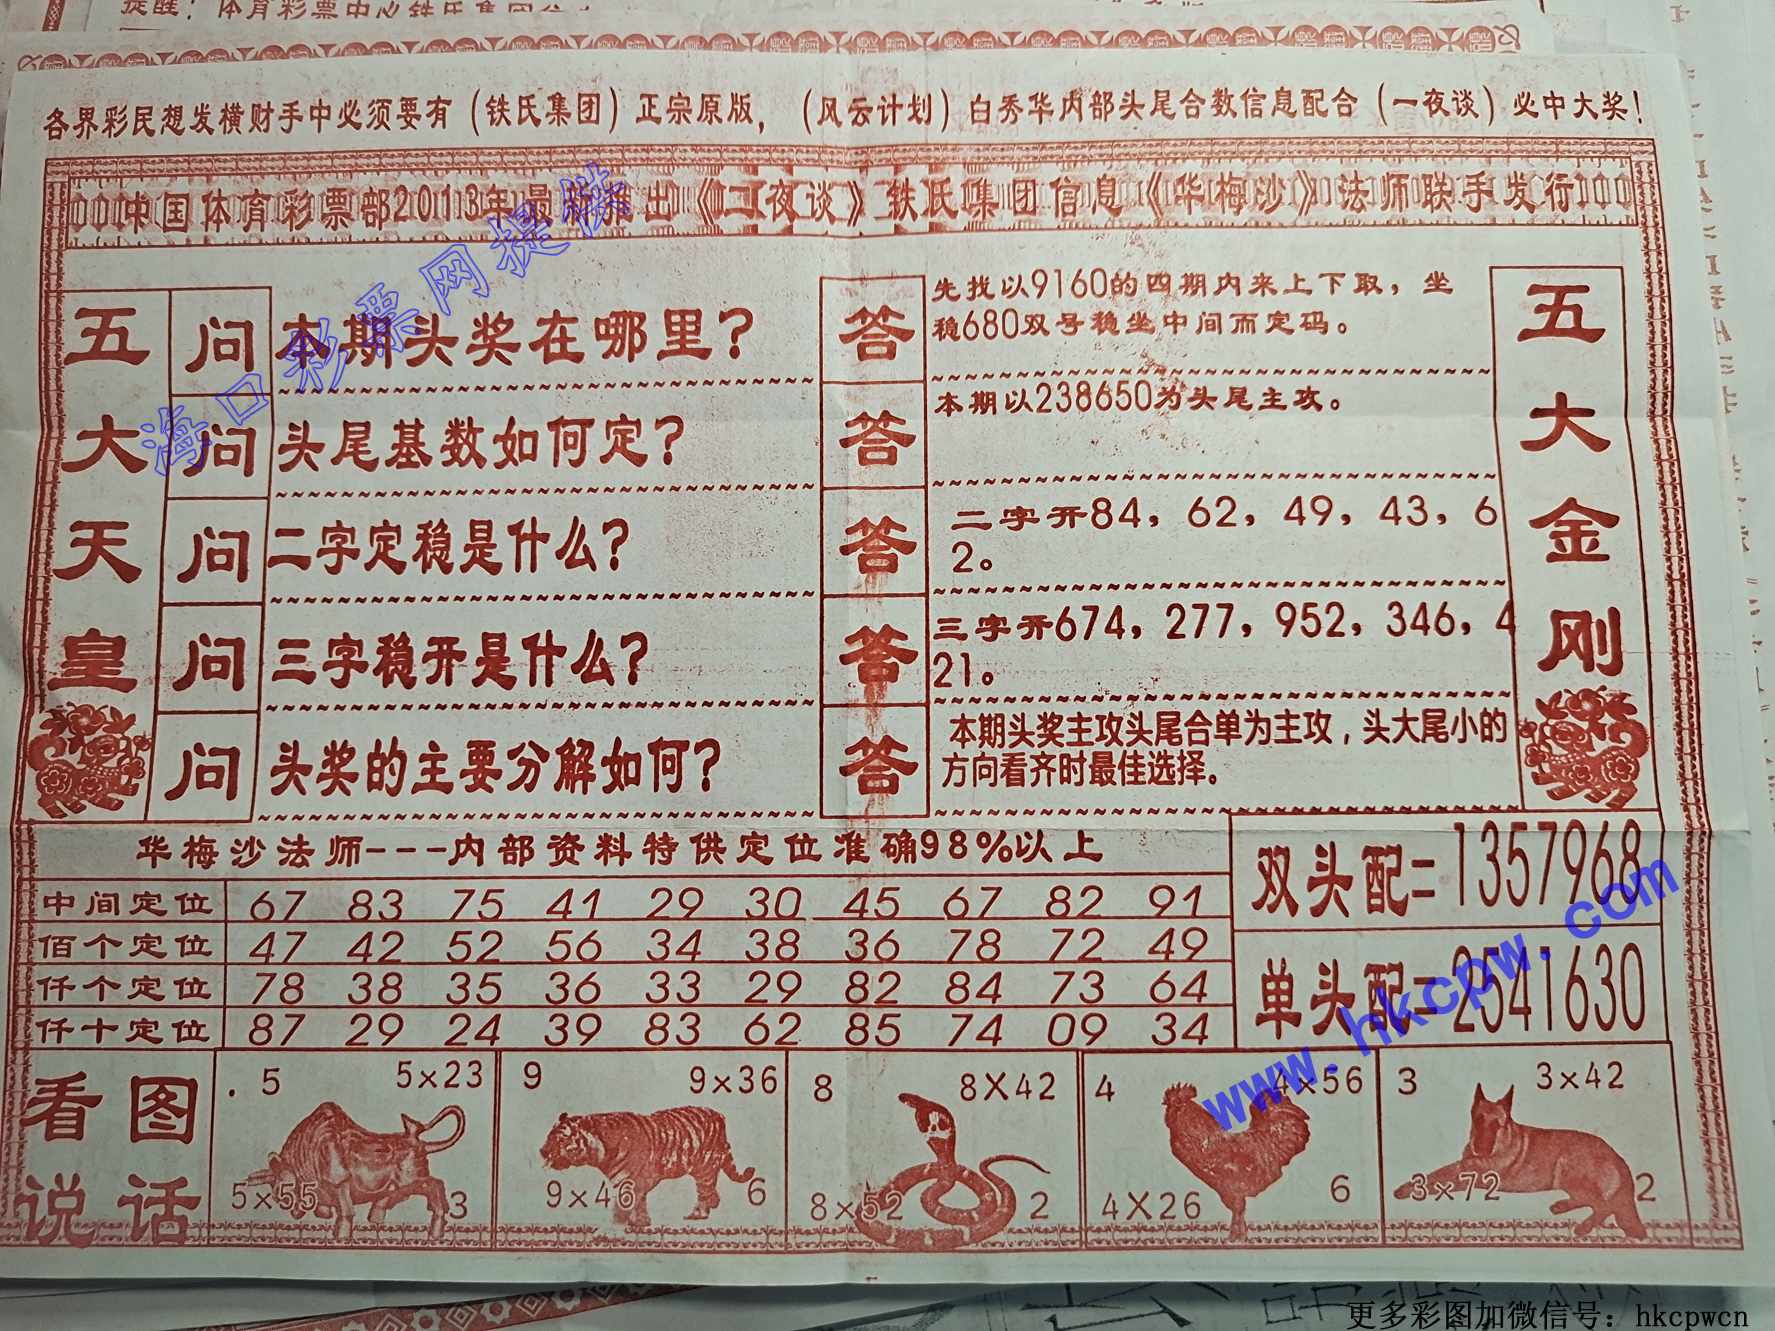 各界彩民想发横财手中必须要有（铁氏集团）正宗原版，（风云计划）白秀华内部头尾合数信息配合（一夜谈）必中大奖！
中国体育彩票部2013年最新推出《一夜谈》铁氏集团信息《华梅沙》法师联手发行
五大天皇
问 本期头奖在哪里？
答 先找以9160的四期内来上下取，坐
稳680双号稳坐中间而定码。
问 头尾基数如何定？
答 本期以238650为头尾主攻。
问 二字定稳是什么？
答 二字开84，62，49，43，6
2。
问 三字稳开是什么？
答 三字开674，277，952，346，4
21。
问 头奖的主要分解如何？
答 本期头奖主攻头尾合单为主攻，头大尾小的
方向看齐时最佳选择。
五大金刚
华梅沙法师---内部资料特供定位准确98%以上
中间定位 67 83 75 41 29 30 45 67 82 91
佰个定位 47 42 52 56 34 38 36 78 72 49
仟个定位 78 38 35 36 33 29 82 84 73 64
仟十定位 87 29 24 39 83 62 85 74 09 34
双头配=1357968
单头配=2541630
看图
说话
.5 5×23
5×55 3
9 9×36
9×46 6
8 8X42
8×52 2
4 4×56
4X26 6
3 3×42
3×72 2
海口彩票网提供
www.hkcpw.com
更多彩图加微信号：hkcpwcn